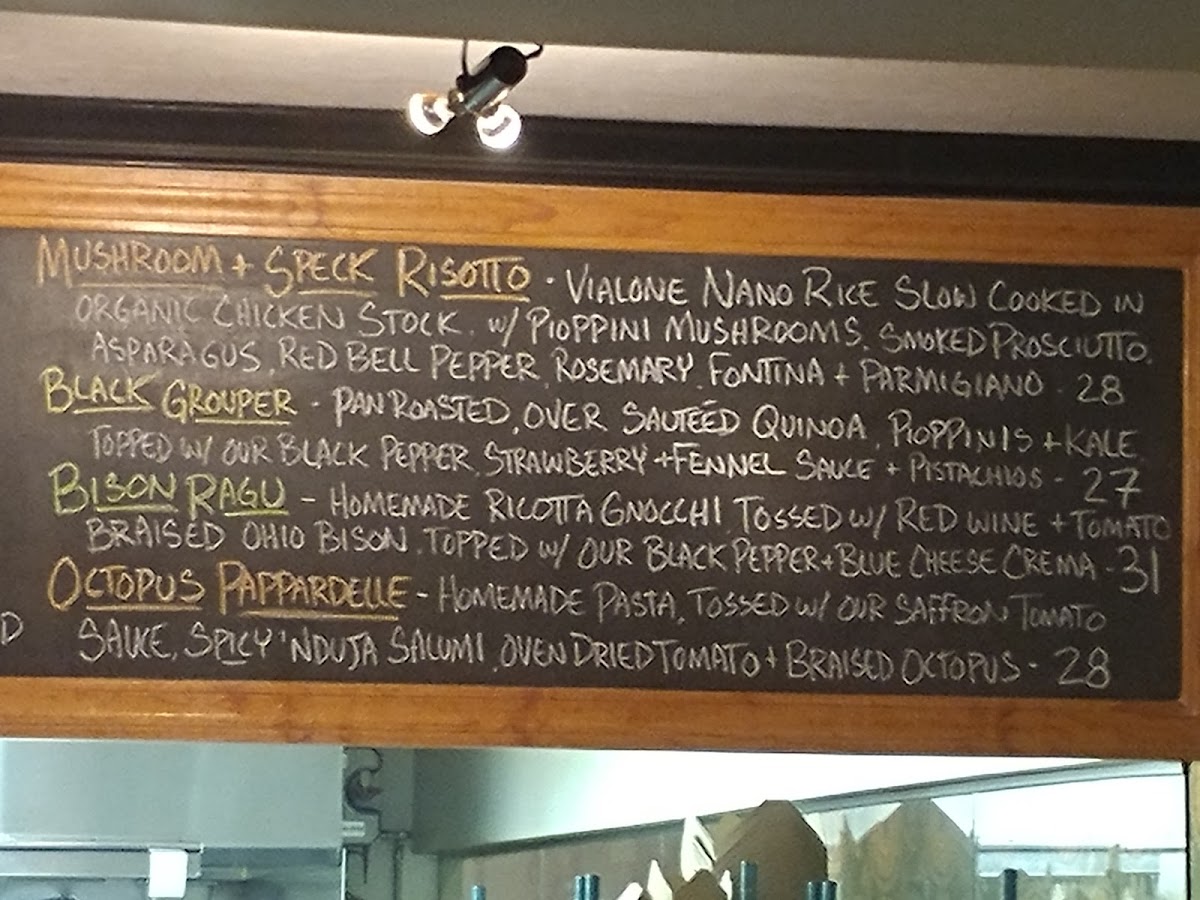 MUSHROOM + SPECK RISOTTO - VIALONE NANO RICE SLOW COOKED IN
ORGANIC CHICKEN STOCK, W/ PIOPPINI MUSHROOMS, SMOKED PROSCIUTTO,
ASPARAGUS, RED BELL PEPPER, ROSEMARY, FONTINA + PARMIGIANO - 28
BLACK GROUPER - PAN ROASTED, OVER SAUTEÉD QUINOA, PIOPPINIS + KALE,
TOPPED W/ OUR BLACK PEPPER, STRAWBERRY + FENNEL SAUCE + PISTACHIOS - 27
BISON RAGU - HOMEMADE RICOTTA GNOCCHI, TOSSED W/ RED WINE + TOMATO
BRAISED OHIO BISON, TOPPED W/ OUR BLACK PEPPER + BLUE CHEESE CREMA - 31
OCTOPUS PAPPARDELLE - HOMEMADE PASTA, TOSSED W/ OUR SAFFRON TOMATO
SAUCE, SPICY 'NDUJA SALUMI, OVEN DRIED TOMATO + BRAISED OCTOPUS - 28